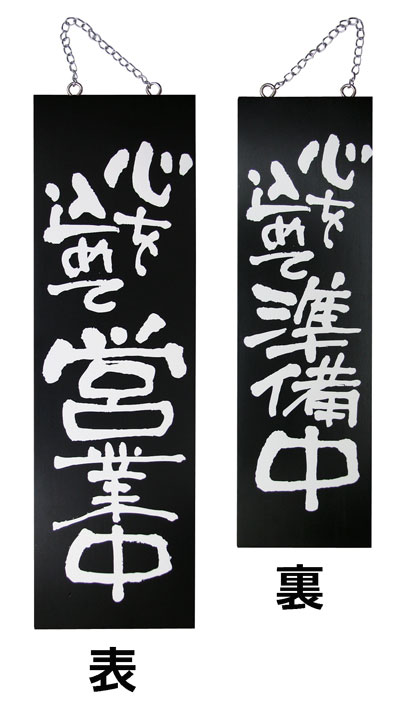 心を
込めて
営業中
表
心を
込めて
準備中
裏